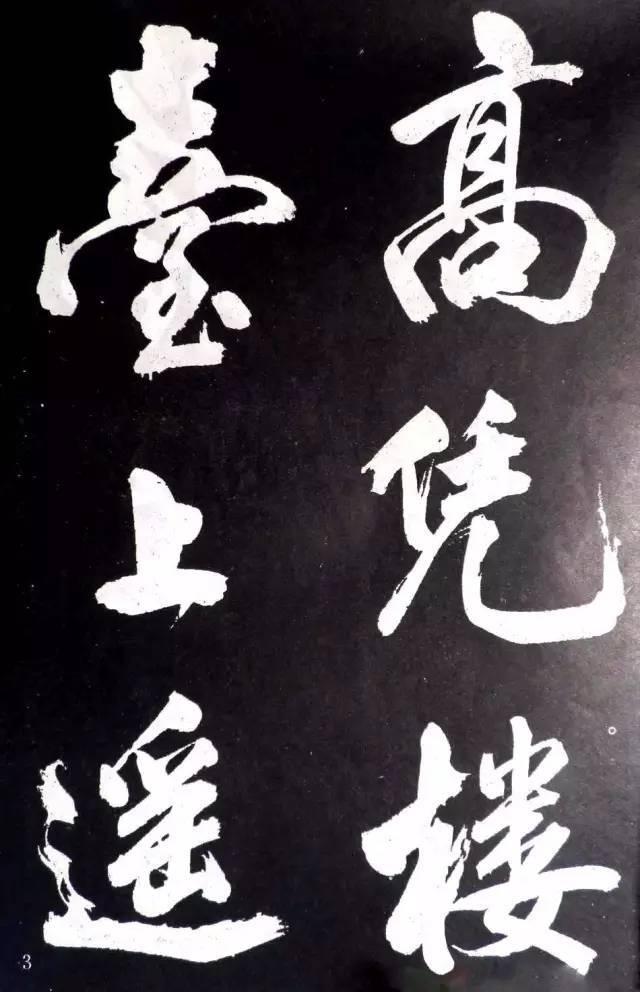 高凭楼
臺上遥
3